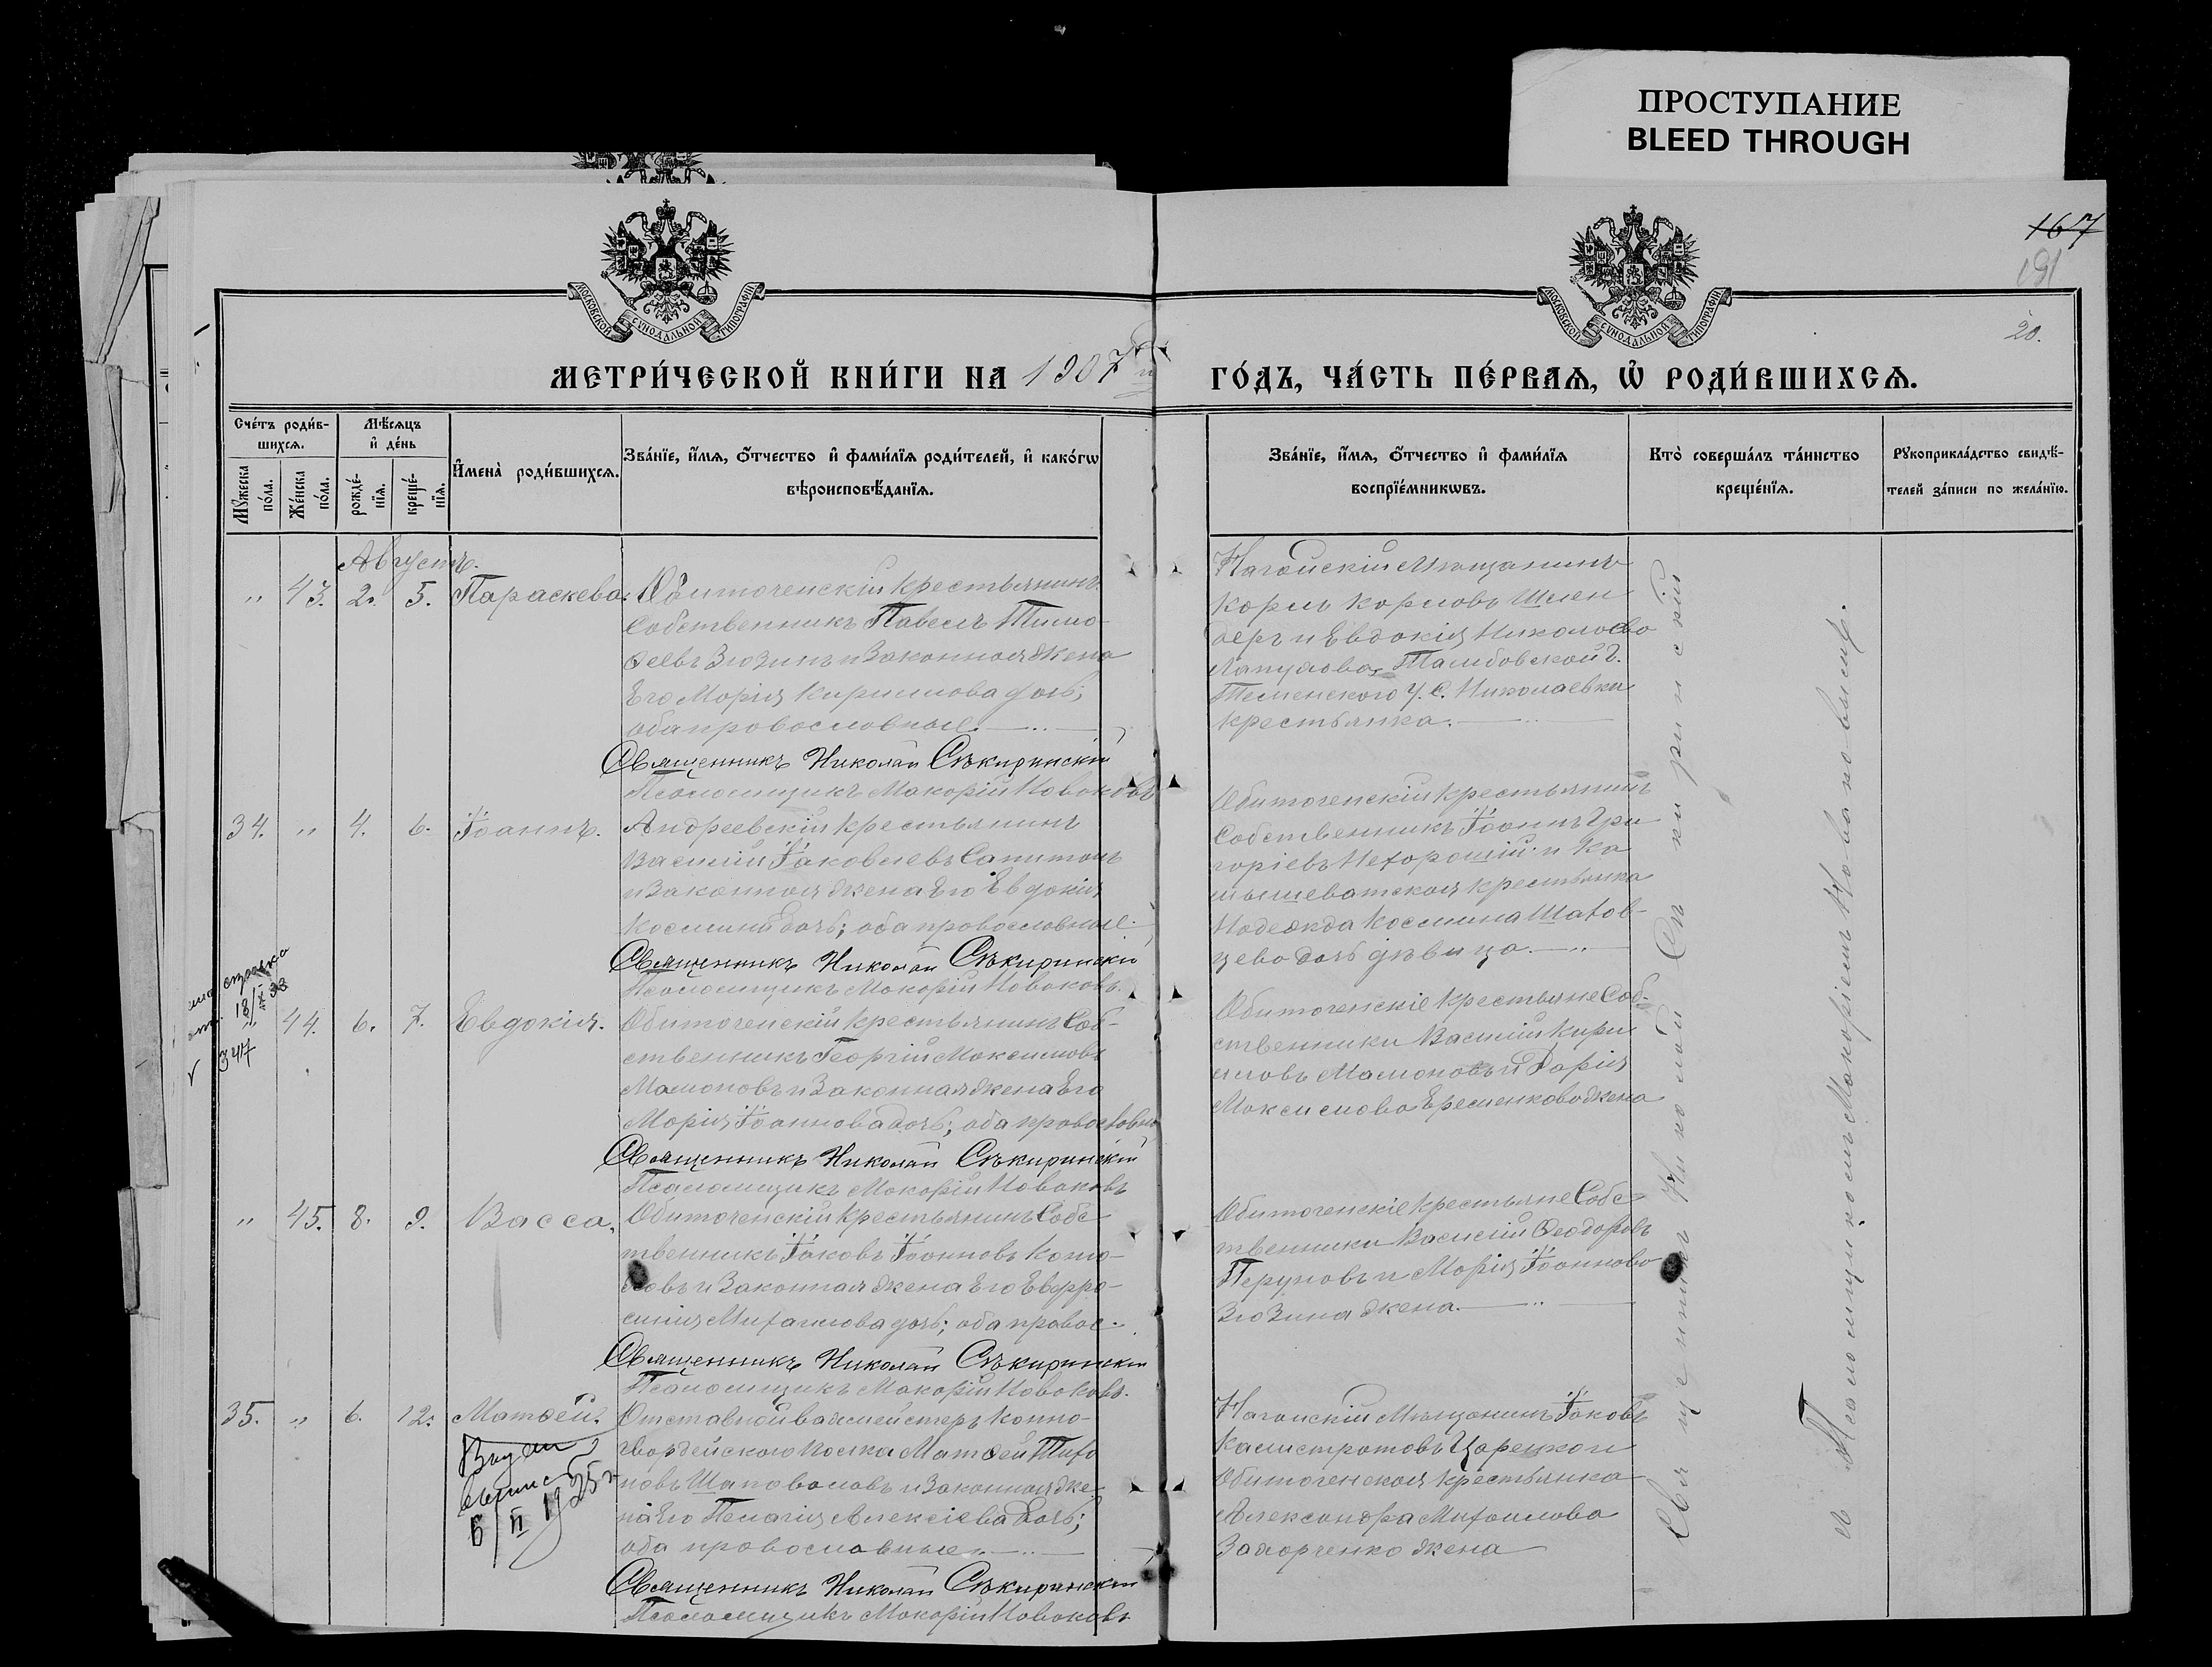 ПРОСТУПАНИЕ
BLEED THROUGH
167
191
20.
МОСКОВСКОЙ СѴНОДАЛЬНОЙ ТИПОГРАФІИ
МОСКОВСКОЙ СѴНОДАЛЬНОЙ ТИПОГРАФІИ
МЕТРИ́ЧЕСКОЙ КНИ́ГИ НА 1907 й
ГО́ДЪ, ЧА́СТЬ ПЕ́РВАѦ, Ѡ РОДИ́ВШИХСѦ.
Сче́тъ роди́в-
шихсѧ.
Мꙋжеска по́ла.
Же́нска по́ла.
Мѣ́сѧцъ
и҆ де́нь
рожде́-
нїѧ.
креще́-
нїѧ.
И҆мена̀ роди́вшихсѧ.
Зва́нїе, и҆́мѧ, ѻ҆́тчество и҆ фами́лїѧ роди́телей, и҆ како́гѡ
вѣроисповѣ́данїѧ.
Зва́нїе, и҆́мѧ, ѻ҆́тчество и҆ фами́лїѧ
воспрїе́мникѡвъ.
Кто̀ соверша́лъ та́инство
креще́нїѧ.
Рꙋкоприкла́дство свидѣ́-
телей за́писи по жела́нїю.
Августъ.
" 43. 2. 5. Параскева.
Обиточенскій крестьянинъ
Собственникъ Павелъ Тимо-
ѳеевъ Зюзинъ и Законная жена
Его Марія Кириллова дочь;
оба православные.
Священникъ Николай Сѣкиринскій
Псаломщикъ Макарій Новаковъ
Ногайскій Мѣщанинъ
Карлъ Карловъ Шлен
деръ и Евдокія Николаева
Лапухова, Тамбовской Г.
Теменского У. С. Николаевки
крестьянка.
34. " 4. 6. Іоаннъ.
Андреевскій крестьянинъ
Василій Іаковлевъ Сапитонъ
и Законная жена Его Евдокія
Космина дочь; оба православные.
Священникъ Николай Сѣкиринскій
Псаломщикъ Макарій Новаковъ.
Обиточенскій крестьянинъ
Собственникъ Іоаннъ Гри
горіевъ Нехорошій и Ка
мышеватская крестьянка
Надежда Космина Шахов-
цева дочь дѣвица.
справка
18/X 38
347
" 44. 6. 7. Евдокія.
Обиточенскій крестьянинъ Соб-
ственникъ Георгій Максимовъ
Мамоновъ и Законная жена Его
Марія Іоаннова дочь; оба православн
Священникъ Николай Сѣкиринскій
Псаломщикъ Макарій Новаковъ
Обиточенскіе крестьяне Соб-
ственники Василій Кири
лловъ Мамоновъ и Дарія
Максимова Еременкова жена
" 45. 8. 9. Васса.
Обиточенскій крестьянинъ Собс
твенникъ Іаковъ Іоанновъ
и Законная жена Его Евфро-
синія Михаилова дочь; оба правос.
Священникъ Николай Сѣкиринскій
Псаломщикъ Макарій Новаковъ.
Обиточенскіе крестьяне Собс
твенники Василій Ѳеодоровъ
Перуновъ и Марія Іоаннова
Зюзина жена.
35. " 6. 12. Матѳей.
Выдан
выпис
6/II 1925 г
Отставной вахмейстеръ Конно-
гвардейского полка Матѳей Тихо
новъ Шаповаловъ и Законная же
на Его Пелагія Алексіева дочь;
оба православные.
Священникъ Николай Сѣкиринскій
Псаломщикъ Макарій Новаковъ
Ногайскій Мѣщанинъ Іаковъ
Калистратовъ Царецкой
Обиточенская крестьянка
Александра Михаилова
Захарченко жена
Священникъ Николай Сѣкиринскій
и Псаломщикомъ Макаріемъ Новаковымъ.